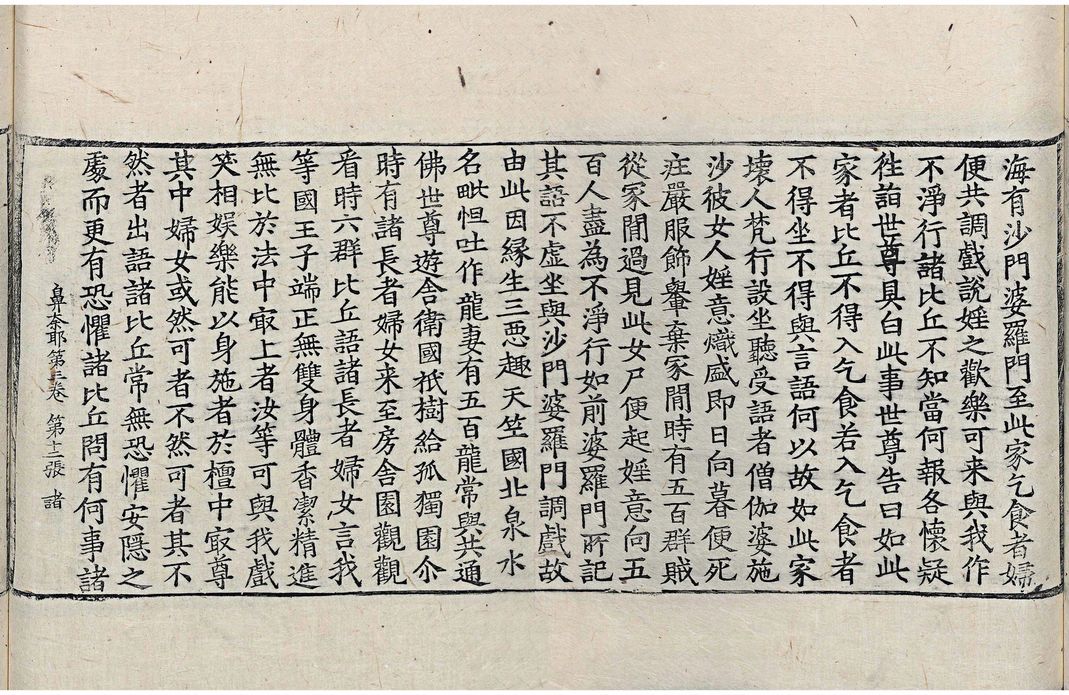 海有沙門婆羅門至此家乞食者婦
便共調戲說婬之歡樂可来與我作
不淨行諸比丘不知當何報各懷疑
徃詣世尊具白此事世尊告曰如此
家者比丘不得入乞食若入乞食者
不得坐不得與言語何以故如此家
壞人梵行設坐聽受語者僧伽婆施
沙彼女人婬意熾盛即日向暮便死
疘嚴服飾轝棄冢間時有五百群賊
從冢間過見此女尸便起婬意向五
百人盡為不淨行如前婆羅門所記
其語不虛坐與沙門婆羅門調戲故
由此因緣生三惡趣天竺國北泉水
名毗怛吐作龍妻有五百龍常與共通
佛世尊遊舍衛國祇樹給孤獨園尒
時有諸長者婦女来至房舍園觀觀
看時六群比丘語諸長者婦女言我
等國王子端正無雙身體香潔精進
無比於法中㝡上者汝等可與我戲
笑相娛樂能以身施者於檀中㝡尊
其中婦女或然可者不然可者其不
然者出語諸比丘常無恐懼安隱之
處而更有恐懼諸比丘問有何事諸
鼻奈耶第三卷 第十二張 諸